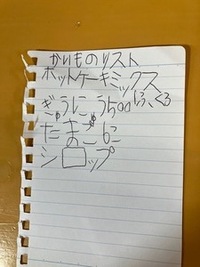 かいものリスト
ホットケーキミックス
ぎゅうにゅう500
たまご6こ
シロップ